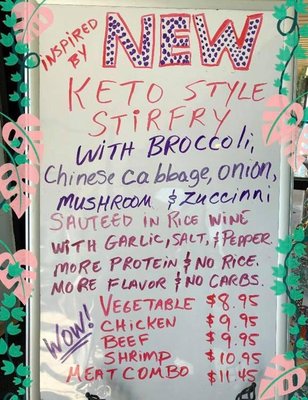 INSPIRED BY
NEW
KETO STYLE
STIRFRY
WITH BROCCOLI,
Chinese cabbage, onion,
MUSHROOM & Zuccinni
SAUTEED IN RICE WINE
WITH GARLIC, SALT, & PEPPER.
MORE PROTEIN & NO RICE.
MORE FLAVOR & NO CARBS.
WOW!
VEGETABLE $8.95
CHICKEN $9.95
BEEF $9.95
SHRIMP $10.95
MEAT COMBO $11.45